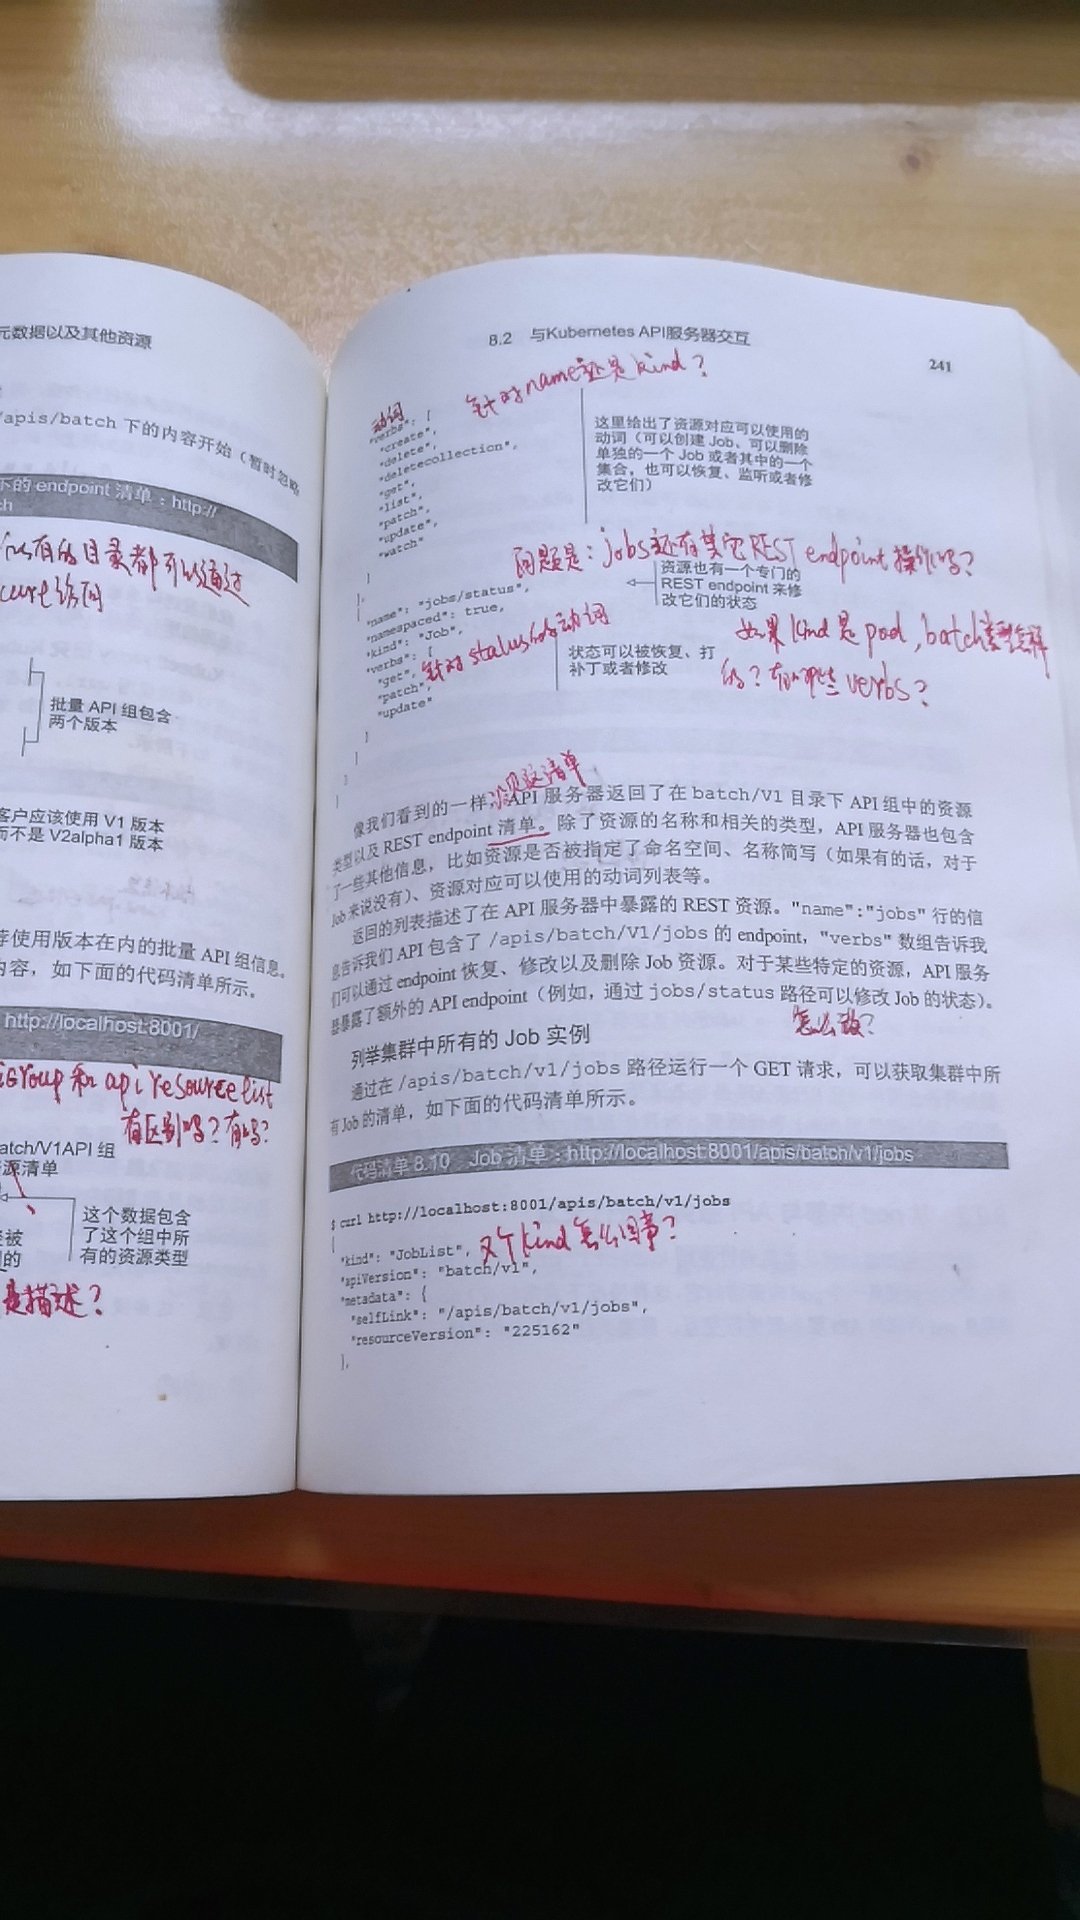 元数据以及其他资源
/apis/batch 下的内容开始（暂时忽略
下的 endpoint 清单：http://
所有的目录都可以通过
curl访问
批量 API 组包含
两个版本
客户应该使用 V1 版本
而不是 V2alpha1 版本
荐使用版本在内的批量 API 组信息。
内容，如下面的代码清单所示。
http://localhost:8001/
Group 和 api resource list
有区别吗？有吗？
batch/V1API 组
资源清单
这个数据包含
了这个组中所
有的资源类型
是描述？
8.2 与Kubernetes API服务器交互
241
针对name还是kind？
动词
"verbs": [
"create",
"delete",
"deletecollection",
"get",
"list",
"patch",
"update",
"watch"
]
这里给出了资源对应可以使用的
动词（可以创建 Job、可以删除
单独的一个 Job 或者其中的一个
集合，也可以恢复、监听或者修
改它们）
问题是：jobs还有其它REST endpoint操作吗？
{
"name": "jobs/status",
"namespaced": true,
"kind": "Job",
"verbs": [
"get",
"patch",
"update"
]
}
]
}
资源也有一个专门的
REST endpoint 来修
改它们的状态
针对status的动词
状态可以被恢复、打
补丁或者修改
如果kind是pod，batch类型怎样
的？有哪些verbs？
资源清单
像我们看到的一样，API 服务器返回了在 batch/V1 目录下 API 组中的资源
类型以及 REST endpoint 清单。除了资源的名称和相关的类型，API 服务器也包含
了一些其他信息，比如资源是否被指定了命名空间、名称简写（如果有的话，对于
Job 来说没有）、资源对应可以使用的动词列表等。
返回的列表描述了在 API 服务器中暴露的 REST 资源。"name":"jobs" 行的信
息告诉我们 API 包含了 /apis/batch/V1/jobs 的 endpoint，"verbs" 数组告诉我
们可以通过 endpoint 恢复、修改以及删除 Job 资源。对于某些特定的资源，API 服务
器暴露了额外的 API endpoint（例如，通过 jobs/status 路径可以修改 Job 的状态）。
怎么改？
列举集群中所有的 Job 实例
通过在 /apis/batch/v1/jobs 路径运行一个 GET 请求，可以获取集群中所
有 Job 的清单，如下面的代码清单所示。
代码清单 8.10 Job 清单：http://localhost:8001/apis/batch/v1/jobs
$ curl http://localhost:8001/apis/batch/v1/jobs
{
"kind": "JobList",
又个kind怎么回事？
"apiVersion": "batch/v1",
"metadata": {
"selfLink": "/apis/batch/v1/jobs",
"resourceVersion": "225162"
},